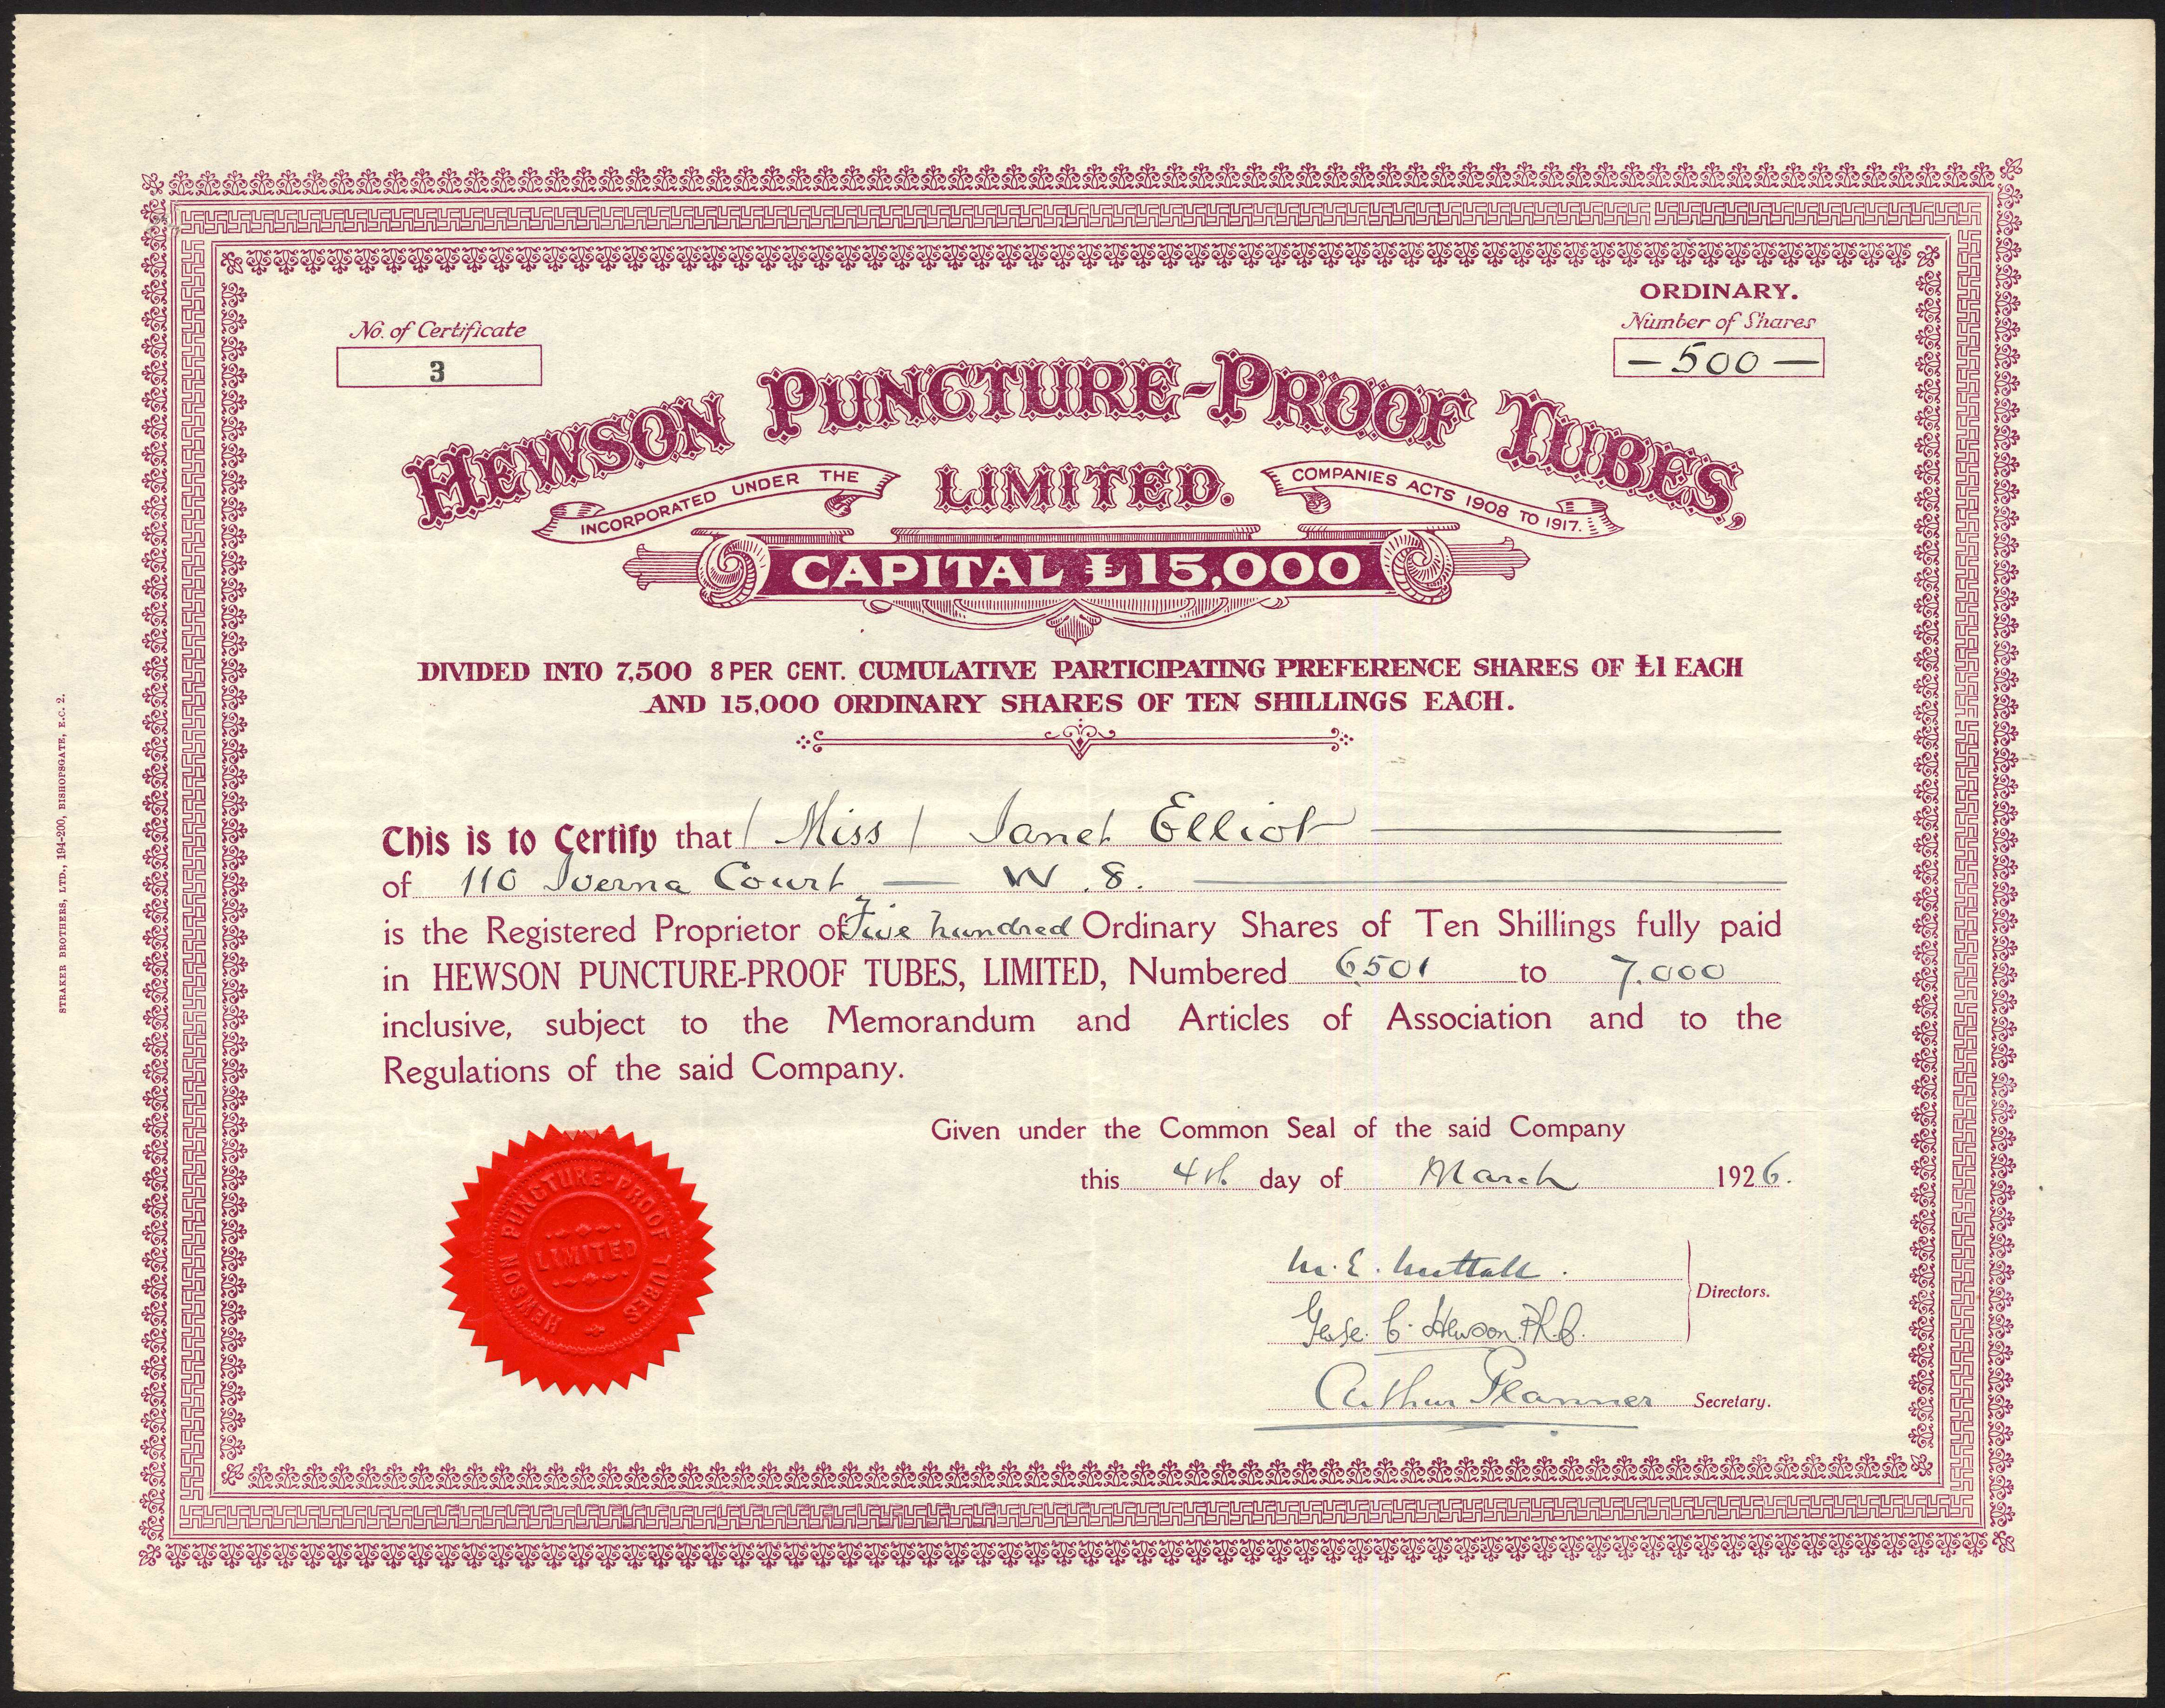 ORDINARY.
No. of Certificate
Number of Shares
3
— 500 —
HEWSON PUNCTURE-PROOF TUBES,
LIMITED.
INCORPORATED UNDER THE
COMPANIES ACTS 1908 TO 1917.
CAPITAL £15,000
DIVIDED INTO 7,500 8 PER CENT. CUMULATIVE PARTICIPATING PREFERENCE SHARES OF £1 EACH
AND 15,000 ORDINARY SHARES OF TEN SHILLINGS EACH.
This is to Certify that / Miss / Janet Elliot
of 110 Iverna Court — W. 8.
is the Registered Proprietor of Five hundred Ordinary Shares of Ten Shillings fully paid
in HEWSON PUNCTURE-PROOF TUBES, LIMITED, Numbered 6501 to 7.000
inclusive, subject to the Memorandum and Articles of Association and to the
Regulations of the said Company.
Given under the Common Seal of the said Company
this 4th day of March 1926.
M. E. Nuttall.
Directors.
C. Hewson Ph.B.
Arthur Planner Secretary.
HEWSON PUNCTURE-PROOF TUBES
LIMITED
STRAKER BROTHERS, LTD., 194-200, BISHOPSGATE, E.C. 2.